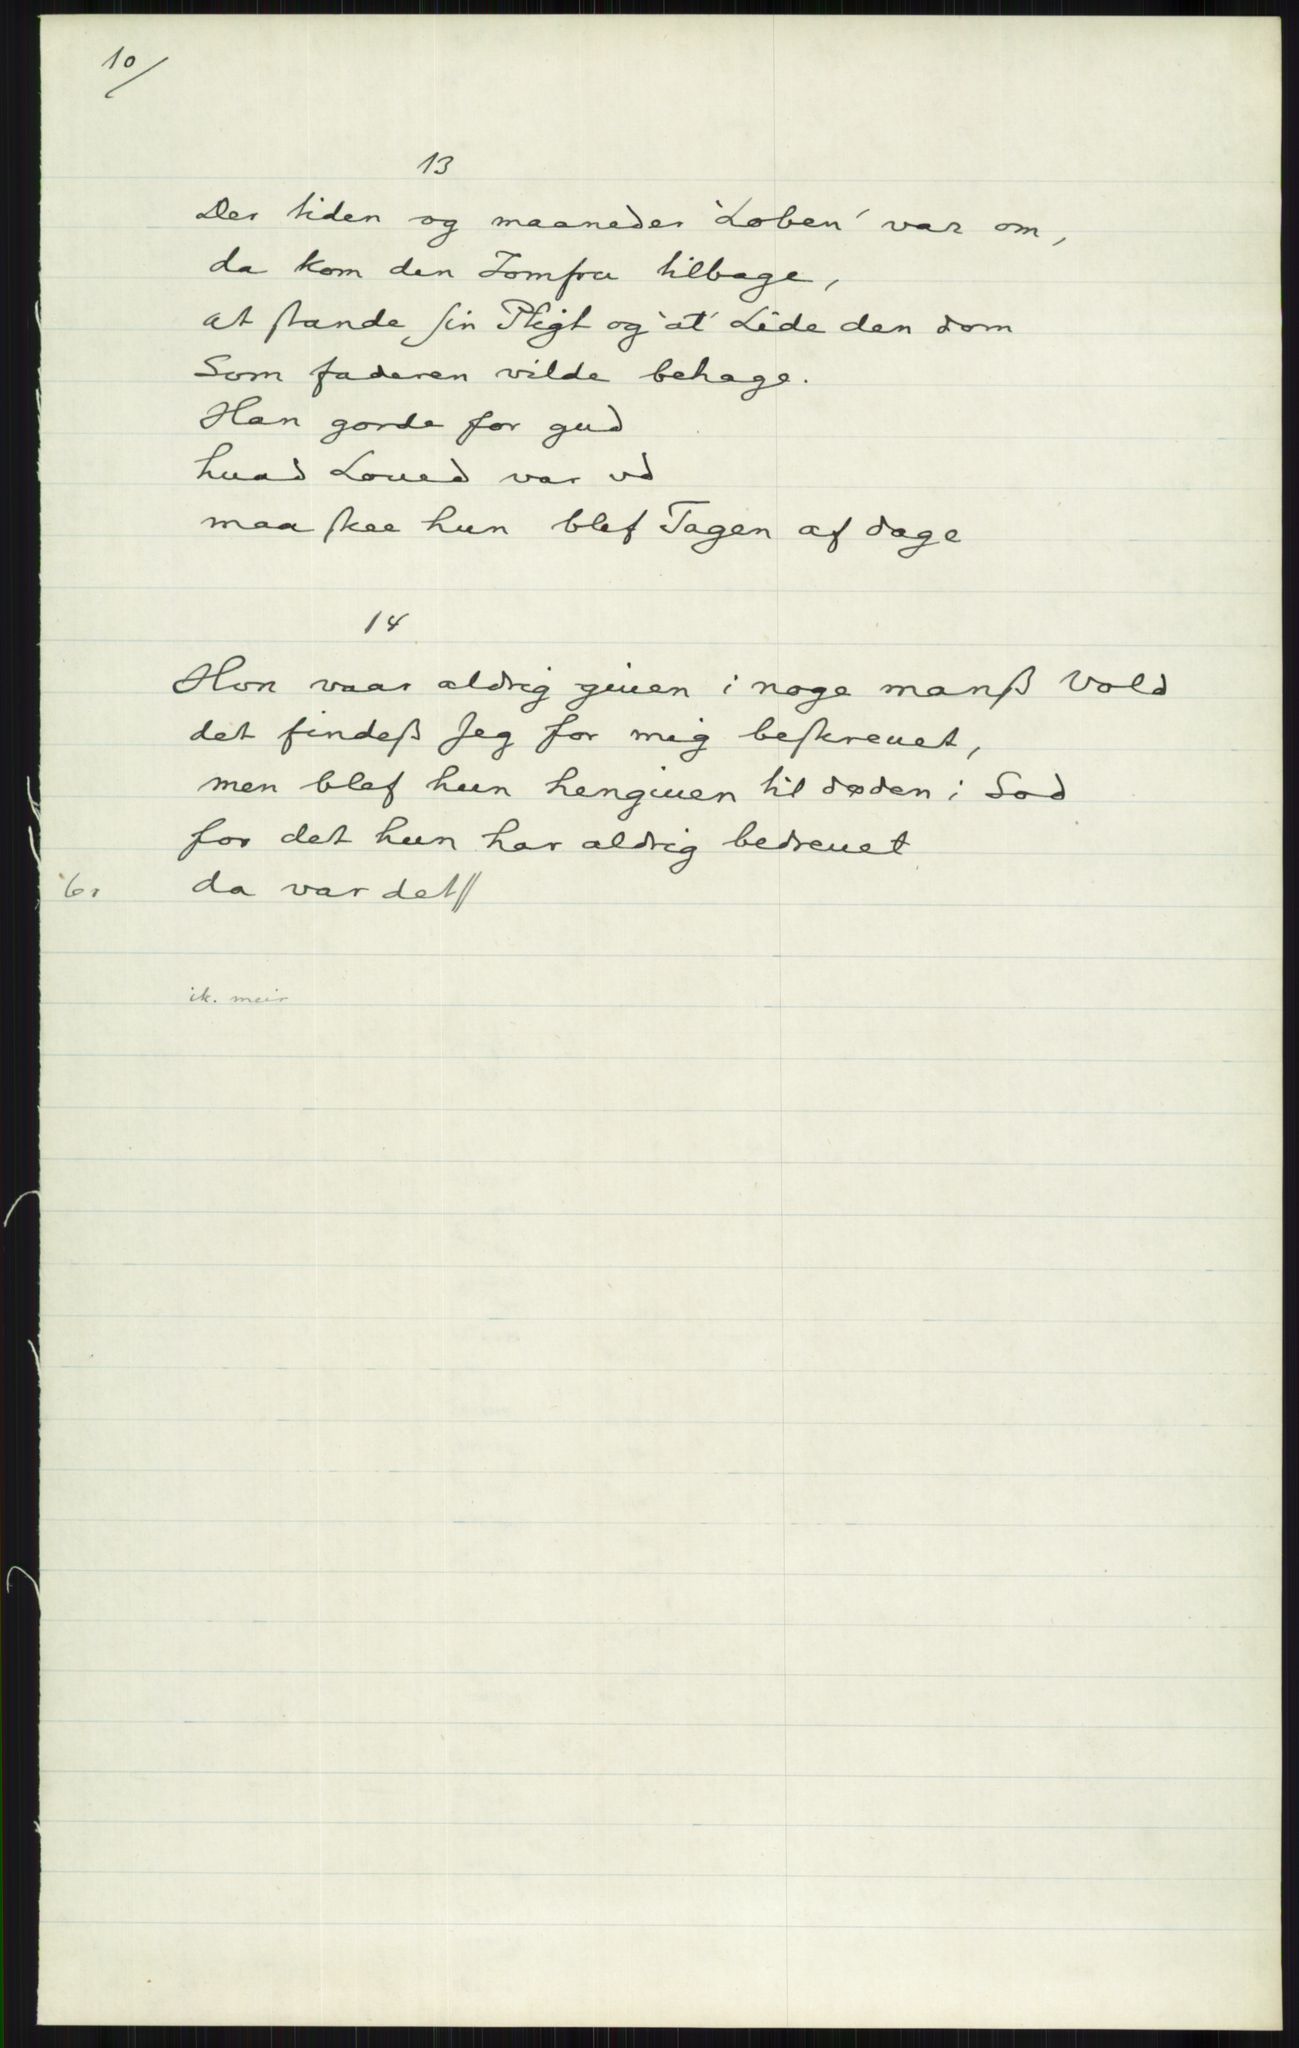 10/
13
Der tiden og maaneder 'Loben' var om,
da kom den Jomfru tilbage,
at ſtande ſin Pligt og 'at' Lide den dom
Som faderen vilde behage.
Han gorde for gud
huad Loued var ud
maa ſkee hun blef Tagen af dage
14
Hon vaar aldrig giuen i noge manß Vold
det findeß Jeg for mig beſkreuet,
men blef hun hengiuen til døden i Sod
for det hun har aldrig bedreuet
6r da var det//
ik. meir